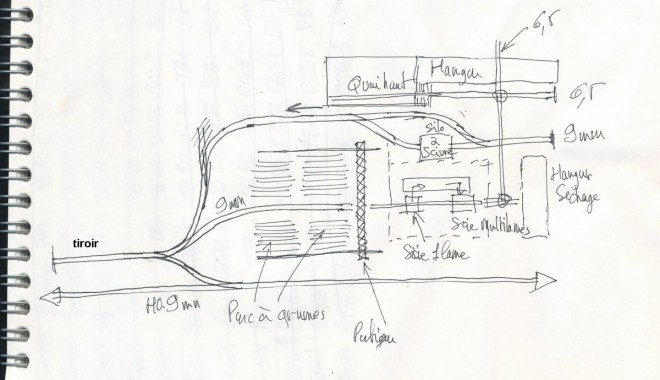 6,5
Quai haut
Hangar
6,5
Silo
à
Sciure
9mm
Hangar
Sechage
9mm
Scie multilames
Scie 1 lame
tiroir
H0 9mm
Parc à grumes